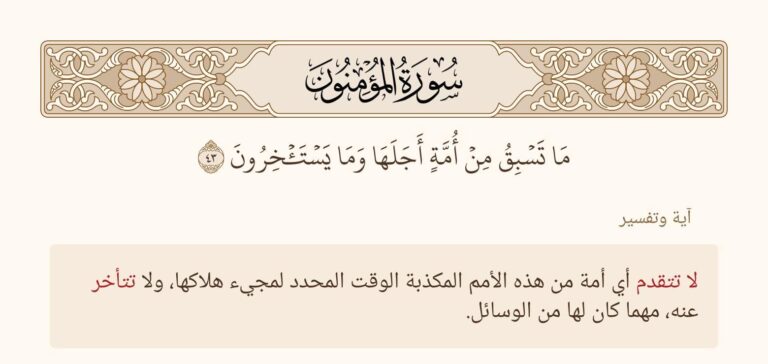 سُورَةُ المُؤْمِنُونَ
مَا تَسۡبِقُ مِنۡ أُمَّةٍ أَجَلَهَا وَمَا يَسۡتَـٔۡخِرُونَ ٤٣
آية وتفسير
لا تتقدم أي أمة من هذه الأمم المكذبة الوقت المحدد لمجيء هلاكها، ولا تتأخر
عنه، مهما كان لها من الوسائل.